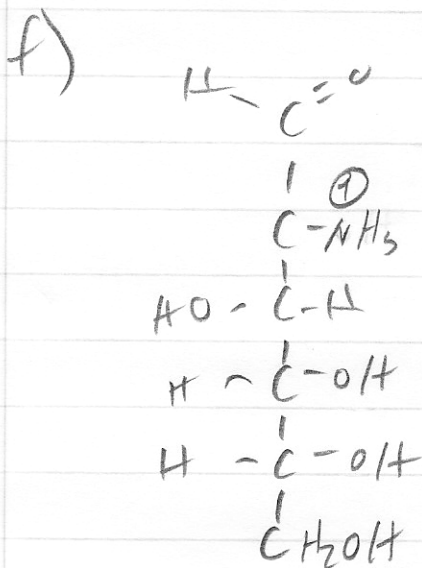 f)
H - C = O
⊕
C - NH3
HO - C - H
H - C - OH
H - C - OH
CH2OH